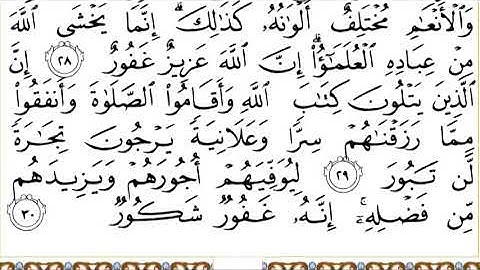 وَٱلۡأَنۡعَٰمِ مُخۡتَلِفٌ أَلۡوَٰنُهُۥ كَذَٰلِكَۗ إِنَّمَا يَخۡشَى ٱللَّهَ
مِنۡ عِبَادِهِ ٱلۡعُلَمَٰٓؤُاْۗ إِنَّ ٱللَّهَ عَزِيزٌ غَفُورٌ ٢٨ إِنَّ
ٱلَّذِينَ يَتۡلُونَ كِتَٰبَ ٱللَّهِ وَأَقَامُواْ ٱلصَّلَوٰةَ وَأَنفَقُواْ
مِمَّا رَزَقۡنَٰهُمۡ سِرّٗا وَعَلَانِيَةٗ يَرۡجُونَ تِجَٰرَةٗ
لَّن تَبُورَ ٢٩ لِيُوَفِّيَهُمۡ أُجُورَهُمۡ وَيَزِيدَهُم
مِّن فَضۡلِهِۦٓۚ إِنَّهُۥ غَفُورٞ شَكُورٞ ٣٠